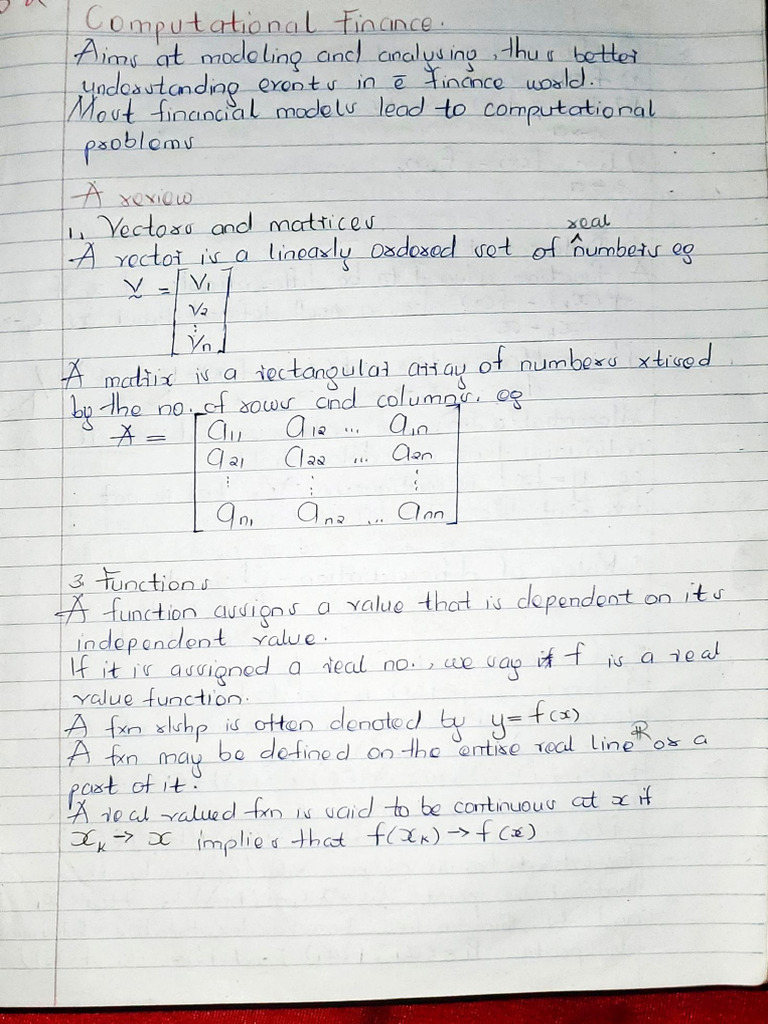 Computational Finance.
Aims at modeling and analysing, thus better
understanding events in ē finance world.
Most financial models lead to computational
problems
A review
1. Vectors and matrices
A vector is a linearly ordered set of ^real numbers eg
V = [V1
V2
⋮
Vn]
A matrix is a rectangular array of numbers xtised
by the no. of rows and columns. eg
A = [a11 a12 ... a1n
a21 a22 ... a2n
⋮ ⋮ ⋮
an1 an2 ... ann]
3. Functions
A function assigns a value that is dependent on its
independent value.
If it is assigned a real no., we say f is a real
value function.
A fxn rlshp is often denoted by y=f(x)
A fxn may be defined on the entire real line ℝ or a
part of it.
A real valued fxn is said to be continuous at x if
xk → x implies that f(xk) → f(x)